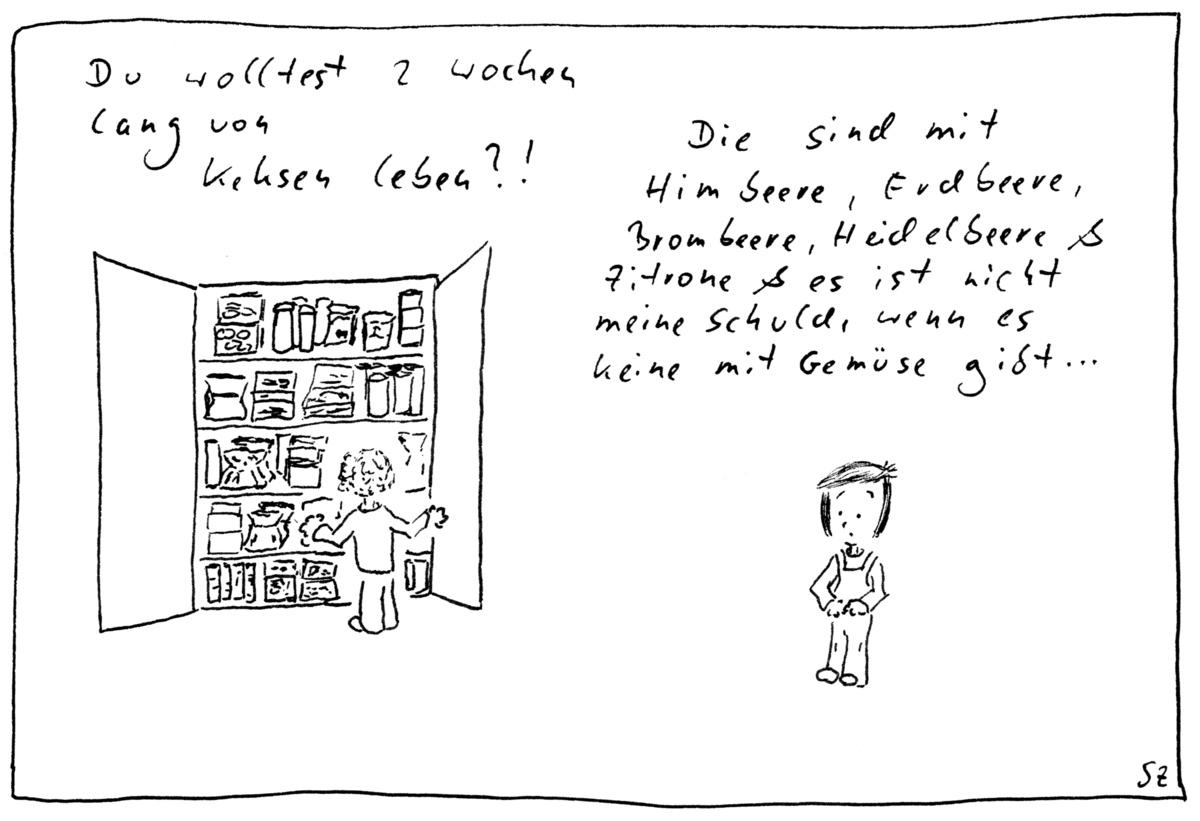 Du wolltest 2 Wochen
lang von
Keksen leben?!
Die sind mit
Himbeere, Erdbeere,
Brombeere, Heidelbeere &
Zitrone & es ist nicht
meine Schuld, wenn es
keine mit Gemüse gibt...
SZ